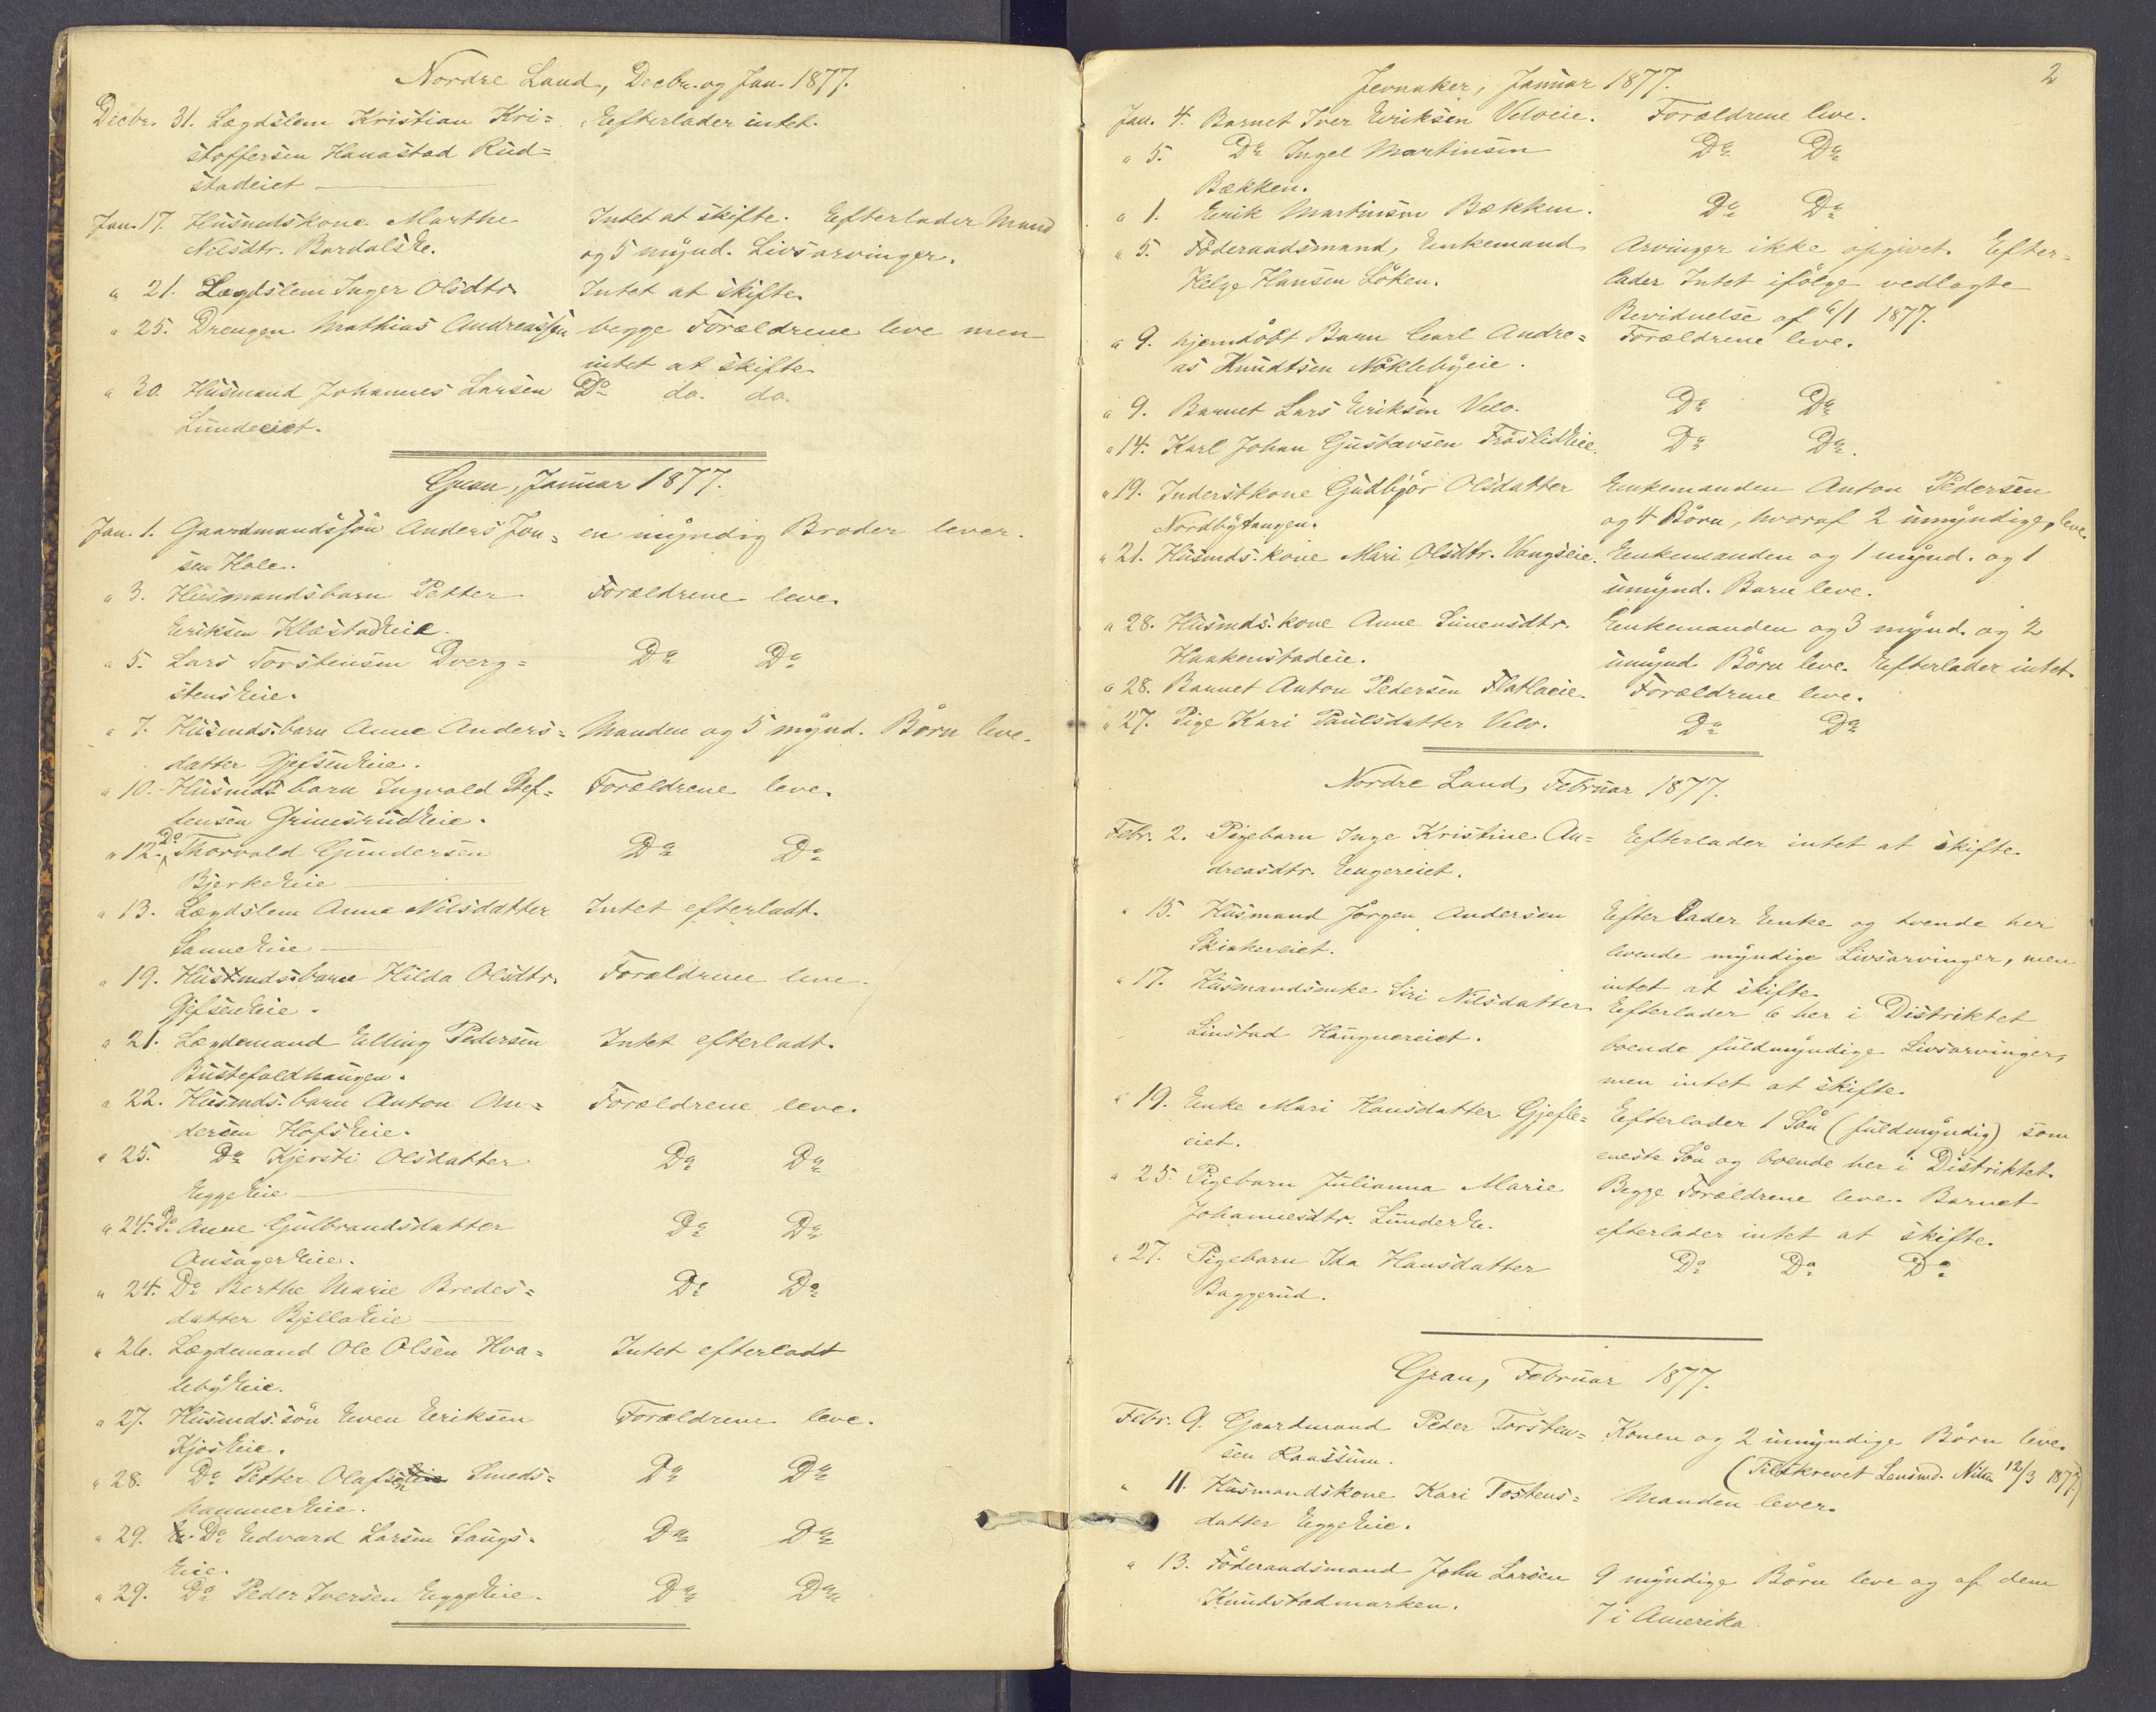 Nordre Land, Decbr. og Jan. 1877.
Decbr. 31. Lægdslem Kristian Kri= Efterlader intet.
stoffersen Hanastad Rud=
stadeiet
Jan. 17. Husmdskone Marthe Intet at skifte. Efterlader Mand
Nilsdtr. BardalsE. og 5 mynd. Livsarvinger.
" 21. Lægdslem Inger Olsdtr. Intet at skifte.
" 25. Drengen Mathias Andreassen begge Forældrene leve men
intet at skifte
" 30. Husmand Johannes Larsen Do do. do.
Lundeeiet.
Gran, Januar 1877.
Jan. 1. Gaardmandssøn Anders Jon= en myndig Broder lever.
sen Hole.
" 3. Husmandsbarn Petter Forældrene leve.
Eriksen KlæstadEie.
" 5. Lars Torstensen Dverg= Do Do
stensEie.
" 7. Husmds.barn Anne Anders= Manden og 5 mynd. Børn leve.
datter GjefsenEie.
" 10. Husmds barn Ingvald Stef= Forældrene leve.
fensen GrimsrudEie.
" 12. Do Thorvald Gundersen Do Do
BjerkeEie
" 13. Lægdslem Anne Nilsdatter Intet efterladt.
SanneEie
" 19. Husmds.barn Hilda Olsdtr. Forældrene leve.
GjefsenEie.
" 21. Lægdemand Elling Pedersen Intet efterladt.
Bustefaldhaugen.
" 22. Husmds. barn Anton An= Forældrene leve.
dersen HofsEie.
" 25. Do Kjersti Olsdatter Do Do
EggeEie
" 24. Do Anne Gulbrandsdatter Do Do
AnsagerEie.
" 24. Do Berthe Marie Bredes= Do Do
datter BjellaEie
" 26. Lægdemand Ole Olsen Hva= Intet efterladt
lebyEie.
" 27. Husmds. søn Even Eriksen Forældrene leve.
KjosEie.
" 28. Do Petter Olafsen Smeds= Do Do
hammerEie.
" 29. Do Edvard Larsen Saugs= Do Do
Eie.
" 29. Do Peder Iversen EggeEie. Do Do
2
Jevnaker, Januar 1877.
Jan. 4. Barnet Iver Eriksen Veloeie. Forældrene leve.
" 5. Do Ingel Martinsen Do Do
Bækken.
" 1. Erik Martinsen Bækken. Do Do
" 5. Føderaadsmand, Enkemand Arvinger ikke opgivet. Efter=
Helge Hansen Løken. lader Intet ifølge vedlagte
Bevidnelse af 6/1 1877.
" 9. hjemdøbt Barn Carl Andre= Forældrene leve.
as Knudtsen Nøklebyeie.
" 9. Barnet Lars Eriksen Velo. Do Do
" 14. Karl Johan Gustavsen FrøslidEie. Do Do.
" 19. Inderstkone Gudbjør Olsdatter Enkemanden Anton Pedersen
Nordbytangen. og 4 Børn, hvoraf 2 umyndige, leve.
" 21. Husmds. kone Mari Olsdtr. Vangseie. Enkemanden og 1 mynd. og 1
umynd. Barn leve.
" 28. Husmds. kone Anne Simensdtr. Enkemanden og 3 mynd. og 2
Haakenstadeie. umynd. Børn leve. Efterlader intet.
" 28. Barnet Anton Pedersen Flatlaeie. Forældrene leve.
" 27. Pige Kari Paulsdatter Velo. Do Do
Nordre Land, Februar 1877.
Febr. 2. Pigebarn Inge Kristine An= Efterlader intet at skifte.
dreasdtr. Engereiet.
" 15. Husmand Jørgen Andersen Efterlader Enke og tvende her
Skinkereiet. levende myndige Livsarvinger, men
intet at skifte.
" 17. Husmandsenke Siri Nilsdatter Efterlader 6 her i Distriktet
Linstad Haugnereiet. boende fuldmyndige Livsarvinger,
men intet at skifte.
" 19. Enke Mari Hansdatter Gjefle= Efterlader 1 Søn (fuldmyndig) som
eiet. eneste Søn og boende her i Distriktet.
" 25. Pigebarn Julianna Marie Begge Forældrene leve. Barnet
Johannesdtr. LunderE. efterlader intet at skifte.
" 27. Pigebarn Ida Hansdatter Do Do Do
Baggerud.
Gran, Februar 1877.
Febr. 9. Gaardmand Peder Torsten= Konen og 2 umyndige Børn leve.
sen Raassum. (Tilskrevet Lensmd. 12/3 1877)
" 11. Husmandskone Kari Tostens= Manden lever.
datter EggeEie.
" 13. Føderaadsmand John Larsen 9 myndige Børn leve og af dem
Kundstadmarken. 7 i Amerika